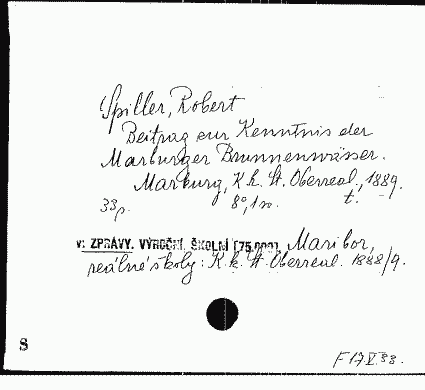 Spiller, Robert
Beitrag zur Kenntnis der
Marburger Brunnenwässer.
Marburg, K. k. St. Oberreal., 1889.
33p. 8°, 1 m. t.
v: ZPRÁVY. VÝROČNÍ. ŠKOLNÍ [75.000], Maribor,
reálné školy: K. k. St. Oberreal. 1888/9.
S
F 17.V.33.